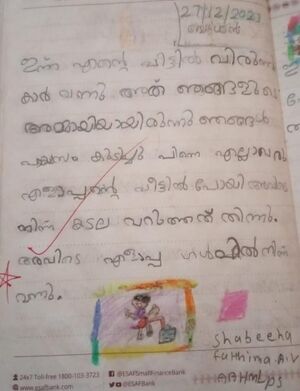 27/12/2023
ബുധൻ
ഇന്ന് എന്റെ വീട്ടിൽ വിരുന്നു
കാർ വന്നു അത് ഞങ്ങളുടെ
അമ്മായിയായിരുന്നു ഞങ്ങൾ
പായസം കുടിച്ചു പിന്നെ എല്ലാവരു
എളാപ്പന്റെ വീട്ടിൽ പോയി
നിന്ന് കടല വറുത്തത് തിന്നു.
അവിടെ എളാപ്പ ഗൾഫിൽ നിന്ന്
വന്നു.
shabeeha
fathima.A.V
ABHMLPS
24x7 Toll-free 1800-103-3723
@ESAFSmallFinanceBank
www.esafbank.com
@ESAFBank